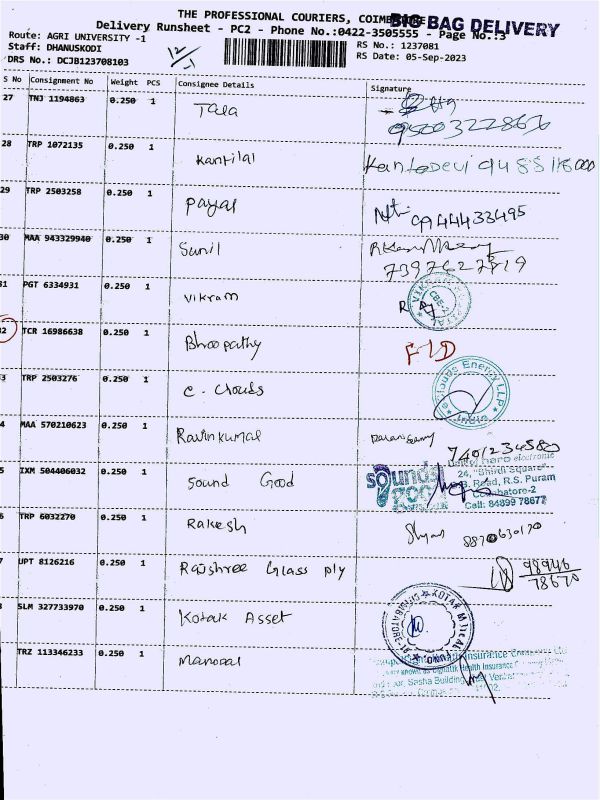 THE PROFESSIONAL COURIERS, COIMBATORE
BIG BAG DELIVERY
Delivery Runsheet - PC2 - Phone No.:0422-3505555 - Page No.:3
Route: AGRI UNIVERSITY -1
RS No.: 1237081
Staff: DHANUSKODI
RS Date: 05-Sep-2023
DRS No.: DCJB123708103
12/-1
S No Consignment No Weight PCS Consignee Details Signature
27 TNJ 1194863 0.250 1 Tara
9500322867
28 TRP 1072135 0.250 1 Kantilal KantaDevi 9488518000
29 TRP 2503258 0.250 1 Payal 0944433495
30 MAA 943329940 0.250 1 Sunil
7397627819
31 PGT 6334931 0.250 1 Vikram
32 TCR 16986638 0.250 1 Bhoopathy FID
3 TRP 2503276 0.250 1 e. clouds e Clouds Energy LLP
4 MAA 570210623 1 0.250 Ravinkumar 7401234580
5 IXM 504406032 0.250 1 Sound Good
sounds good
24, "Shirdi Square"
Road, R.S. Puram
Coimbatore-2
Cell: 84899 78677
6 TRP 6032270 0.250 1 Rakesh Shyam 8870630170
7 UPT 8126216 0.250 1 Rajshree Glass ply 98946
78670
8 SLM 327733970 0.250 1 Kotak Asset KOTAK MUTUAL
TRZ 113346233 0.250 1 Manoval
Insurance
Health Insurance
Sasha Building